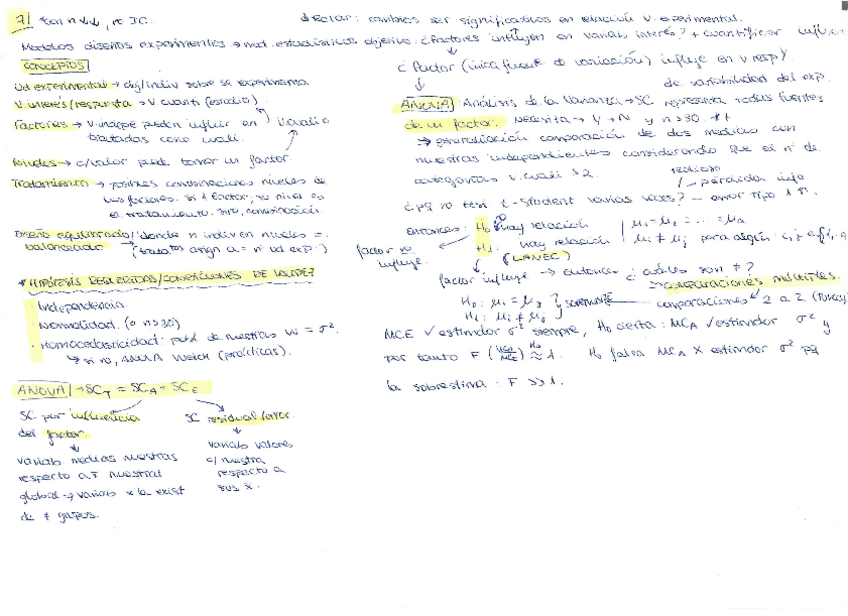 7) Con n ↓↓, no IC.
detectar: cambios ser significativos en relación v. experimental.
Modelos diseños experimentales → mod. estadísticos objetivo: ¿factores influyen en variab interés? + cuantificar influen
CONCEPTOS
Ud experimental → obj/indiv sobre se experimenta
V. interés/respuesta → v. cuanti (estudio)
Factores → v. indepe pueden influir en
tratadas como cuali.
v. cuali o
Niveles → c/valor puede tomar un factor.
Tratamiento → posibles combinaciones niveles de
los factores. si 1 factor, su nivel es
el tratamiento. Sino, combinación
Diseño equilibrado/ donde n indiv en niveles =.
balanceado (tratatos asign a = nº ud exp.)
* HIPÓTESIS REQUERIDAS/CONDICIONES DE VALIDEZ
· Independencia
· Normalidad. (o n>30)
· Homocedasticidad: pobl de muestras σi² = σ².
↳ si no, ANOVA Welch (prácticas).
ANOVA → SCT = SCA + SCE
SC por influencia
del factor.
variab medias muestras
respecto a x̄ muestral
global → variab x la exist
de ≠ grupos.
SC residual/error.
variab valores
c/ muestra
respecto a
sus x̄.
¿Factor (única fuente de variación) influye en v resp?
de variabilidad del exp.
ANOVA Análisis de la Varianza → SC representa todas fuentes
de un factor. Necesita → Y → N y n>30.
⇒ generalización comparación de dos medias con
muestras independientes considerando que el nº de
categorías v. cuali > 2.
tedioso
pérdida info
¿pq no test t-student varias veces? – error tipo I ↑.
Entonces: H0 no hay relación | μ1 = μ2 = ... = μa
factor no
influye.
H1. hay relación | μi ≠ μj para algún i, j
(LANEC)
factor influye → entonces ¿cuáles son ≠?
→ comparaciones múltiples.
H0: μi = μj
H1: μi ≠ μj
comparaciones 2 a 2 (Tukey)
MCE ✓ estimador σ² siempre, H0 cierta: MCA ✓ estimador σ² y
por tanto F (MCA/MCE) H0 ≈ 1. H0 falsa MCA X estimador σ² pq
la sobrestima: F >> 1.